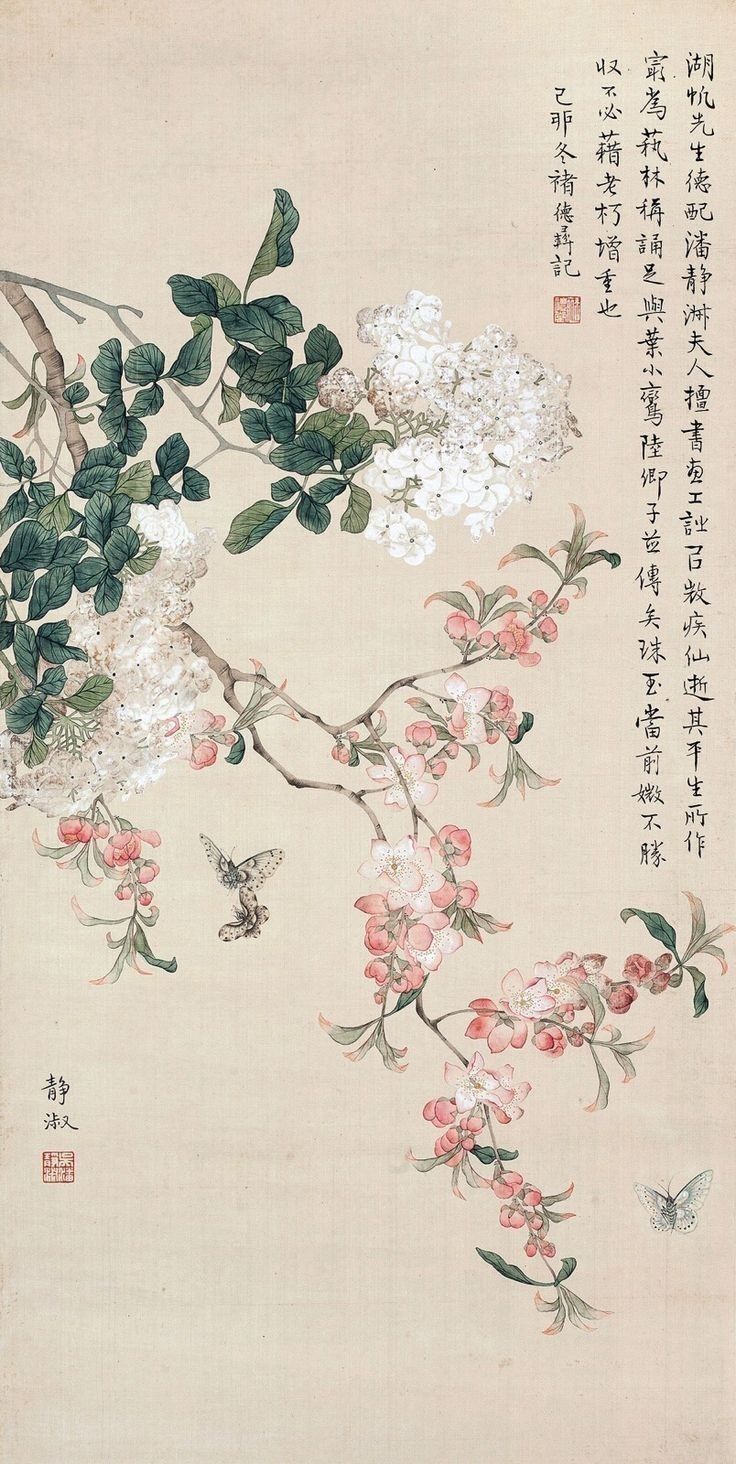 湖帆先生德配潘靜淑夫人擅書畫工詞㠯微疾仙逝其平生所作
寂為藝林稱誦足與葉小鸞陸卿子並傳矣珠玉當前媺不勝
収不必藉老朽增重也
己卯冬褚德彝記
靜
淑
吳潘
靜淑